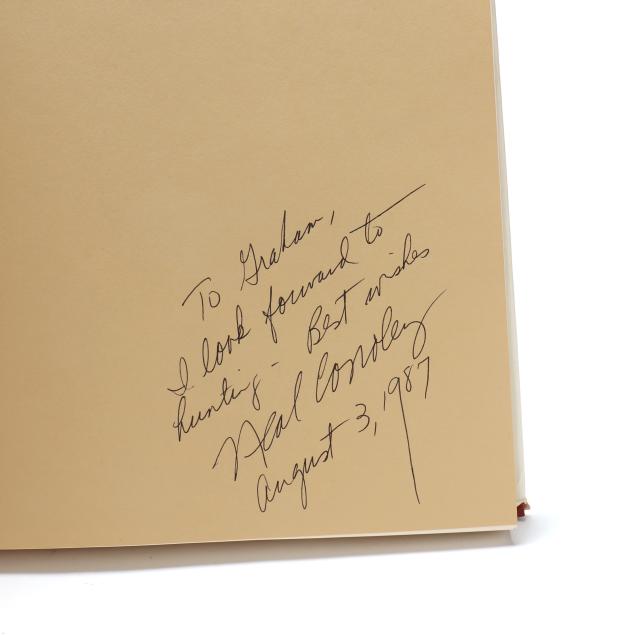 To Graham,
I look forward to
hunting - Best wishes
Neal Conoley
August 3, 1987